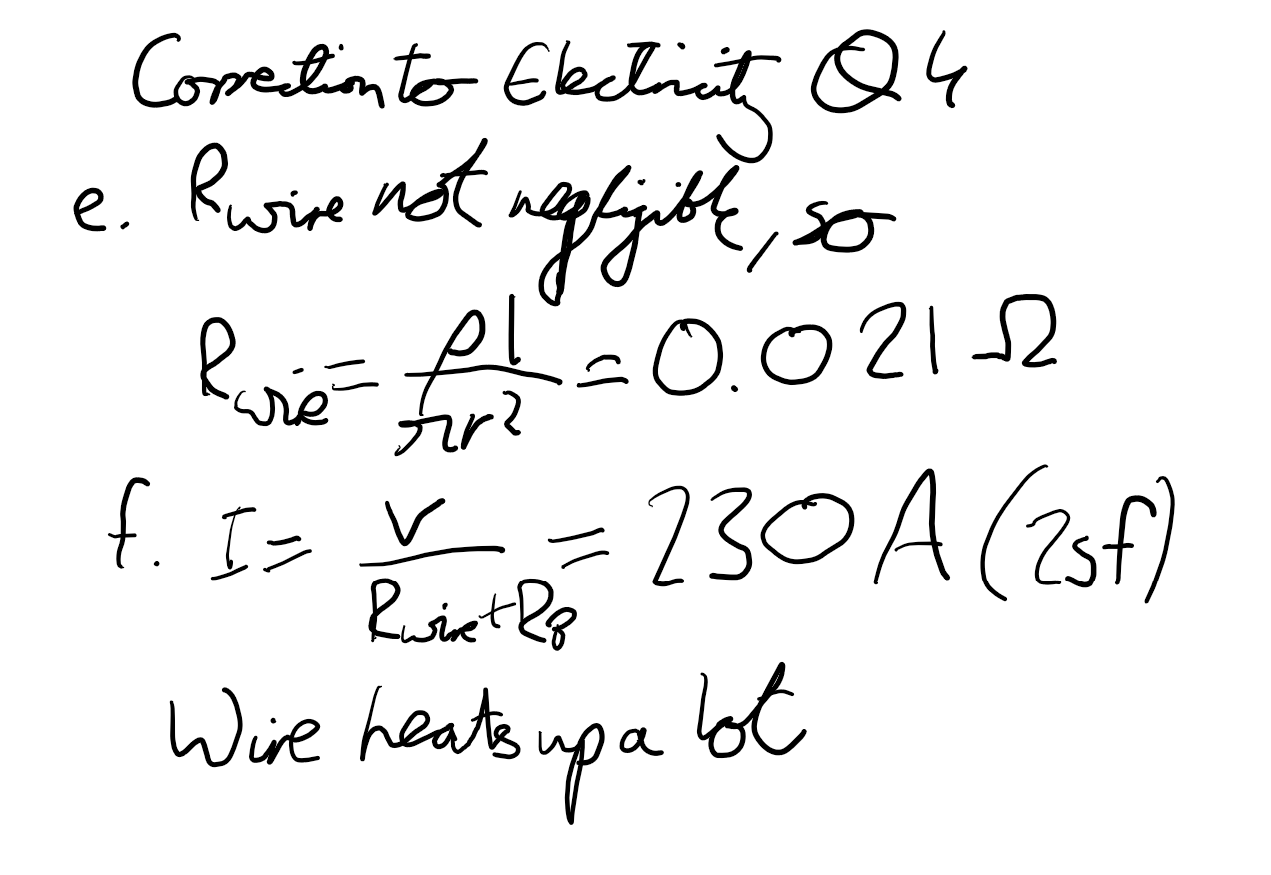 Correction to Electricity Q4
e. Rwire not negligible, so
Rwire = ρl/πr² = 0.021 Ω
f. I = V/(Rwire+RB) = 230 A (2sf)
Wire heats up a lot